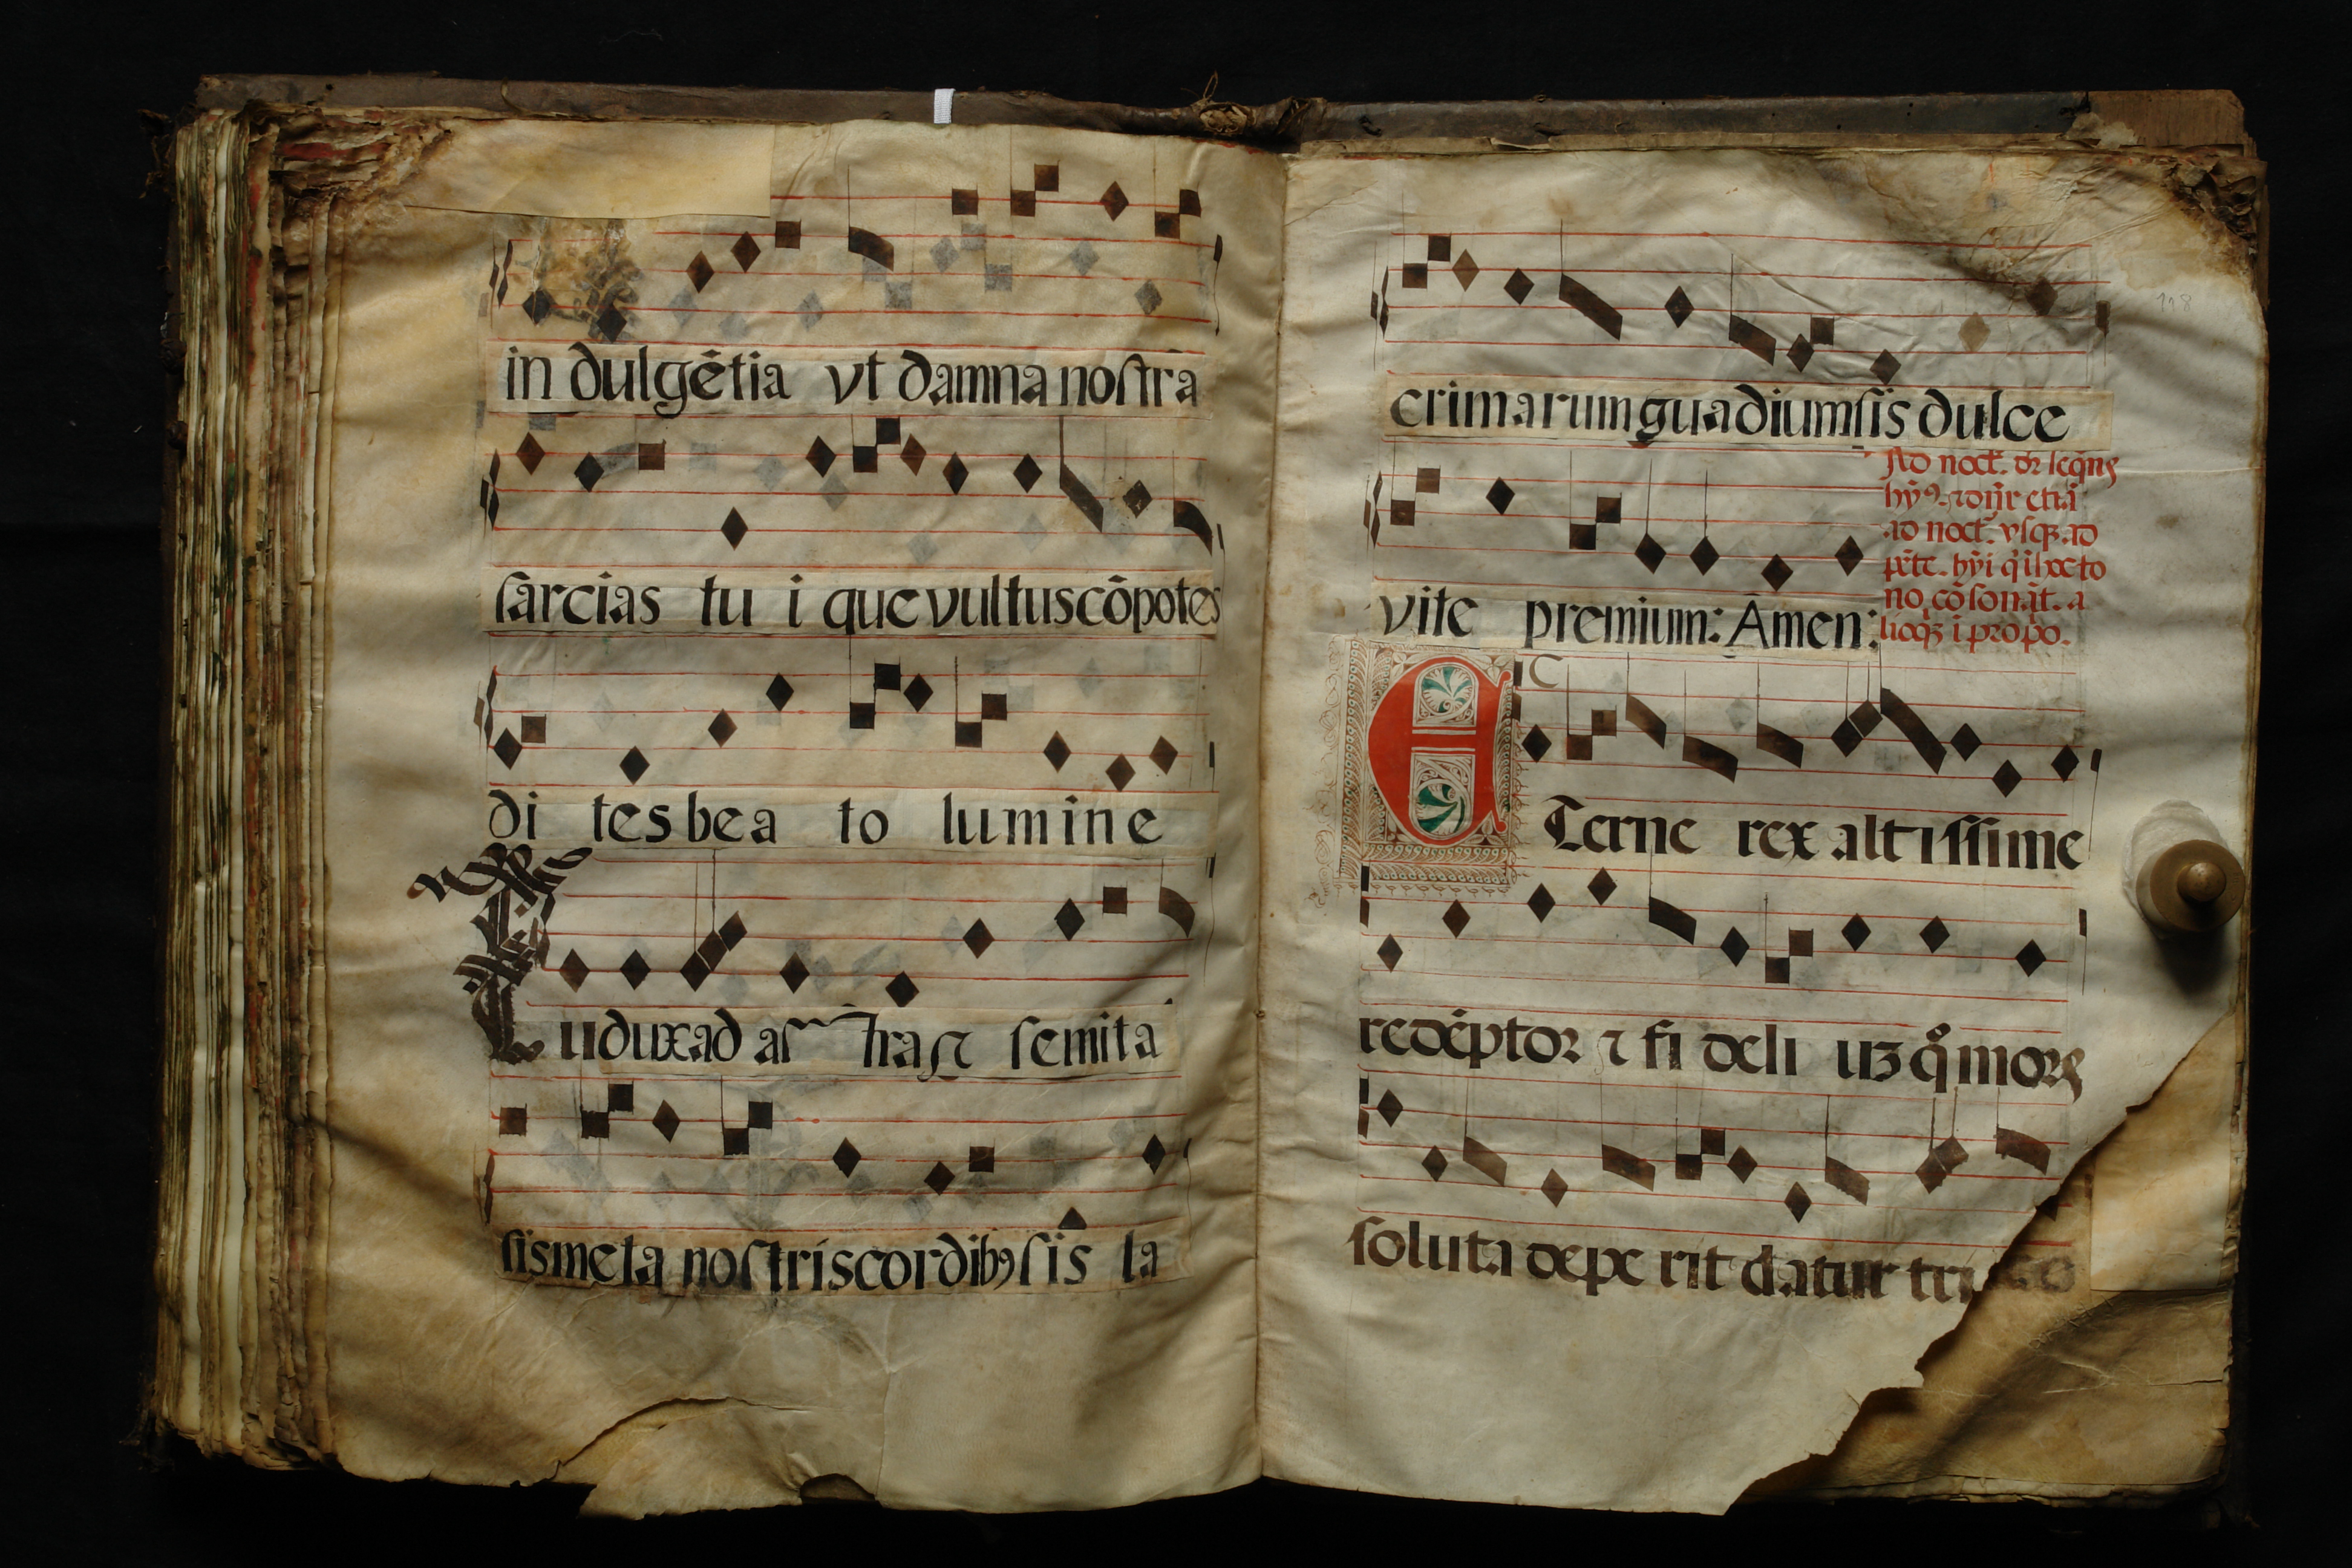 in dulgẽtia vt damna noſtra
ſarcias tu i que vultus cõpotes
di tes bea to lumine
Tu dux ad aſtra ſemita
ſis meta noſtris cordibꝯ ſis la
crimarum guadium ſis dulce
vite premium: Amen:
Ad noct̃.
ad noct̃. vſqꝫ ad
Eterne rex altiſſime
redẽptor ⁊ fi deli uꝫ q̊ mors
ſoluta depe rit datur tri
118